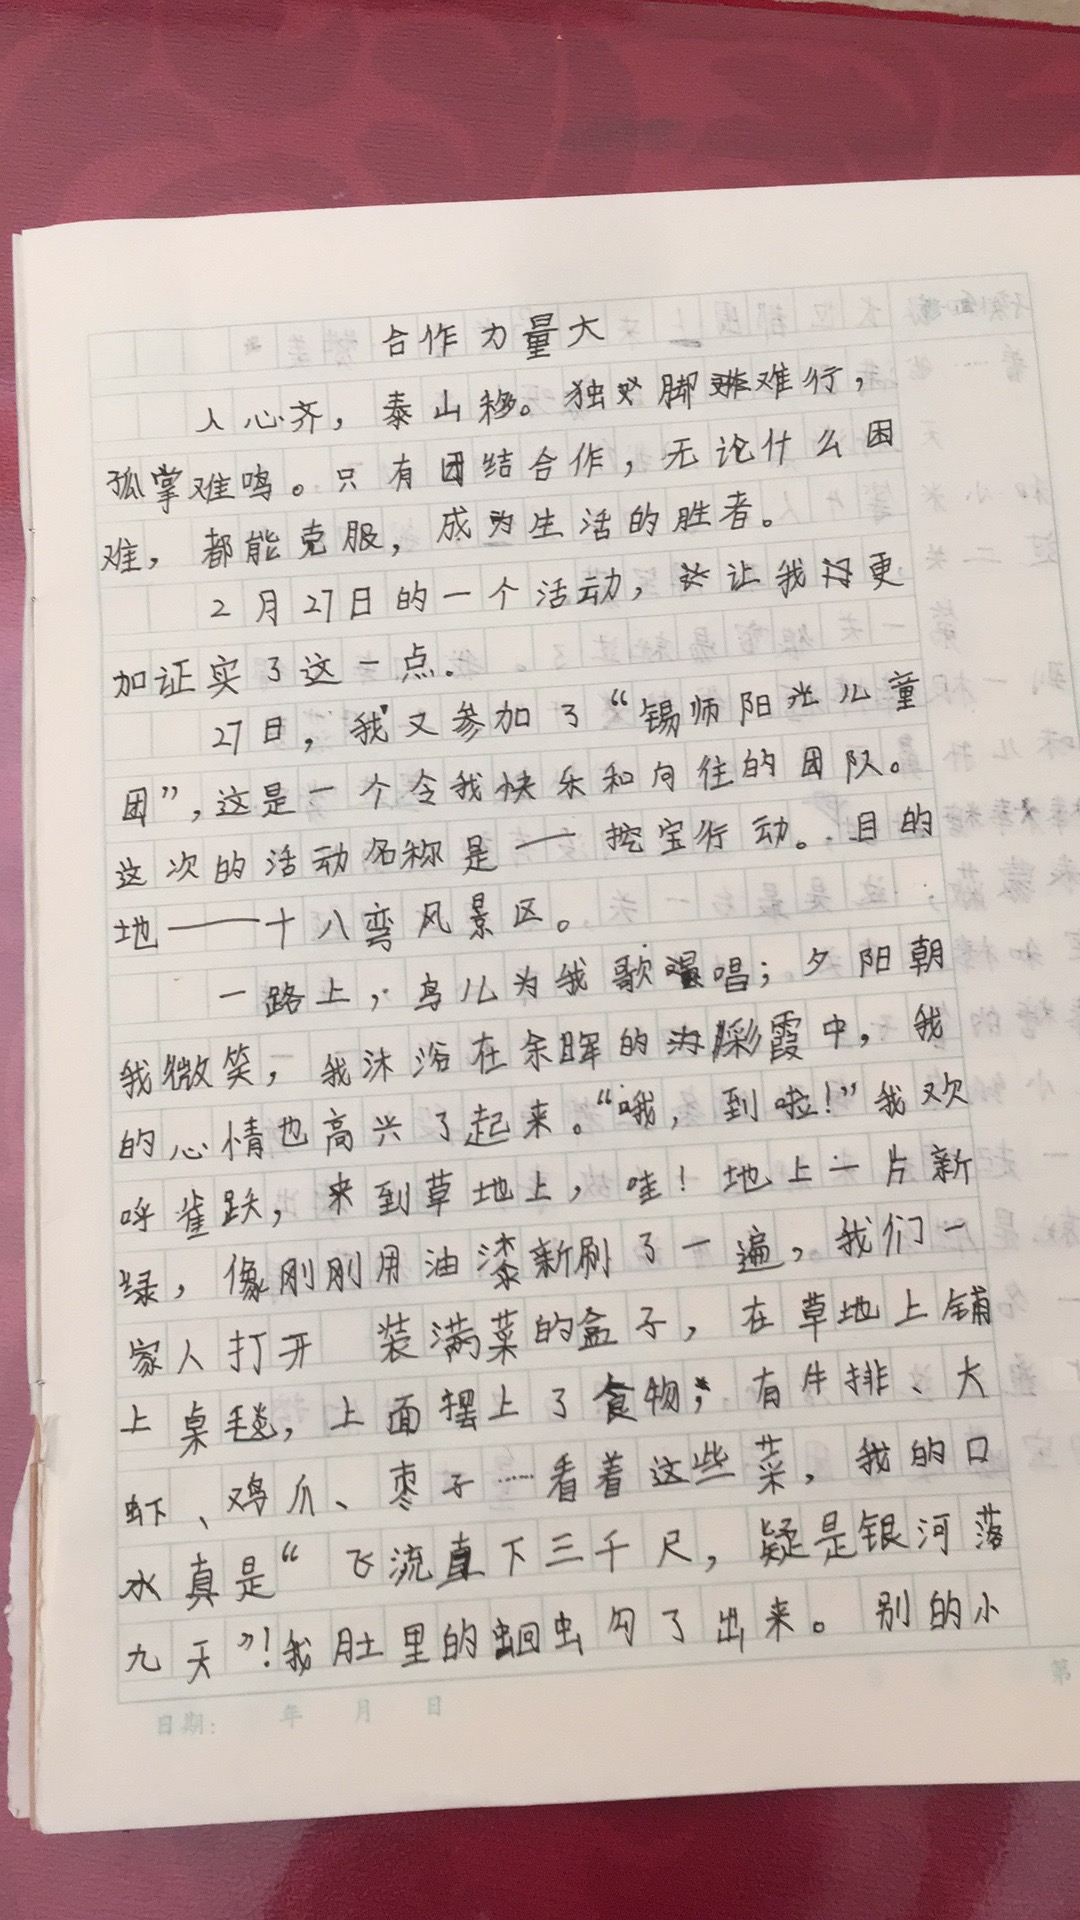 合作力量大
人心齐，泰山移。独脚难行，
孤掌难鸣。只有团结合作，无论什么困
难，都能克服，成为生活的胜者。
2月27日的一个活动，让我更
加证实了这一点。
27日，我又参加了“锡师阳光儿童
团”，这是一个令我快乐和向往的团队。
这次的活动名称是——挖宝行动。目的
地——十八弯风景区。
一路上，鸟儿为我歌唱；夕阳朝
我微笑，我沐浴在余晖的彩霞中，我
的心情也高兴了起来。“哦，到啦！”我欢
呼雀跃，来到草地上，哇！地上一片新
绿，像刚刚用油漆新刷了一遍，我们一
家人打开 装满菜的盒子，在草地上铺
上桌毯，上面摆上了食物；有牛排、大
虾、鸡爪、枣子……看着这些菜，我的口
水真是“飞流直下三千尺，疑是银河落
九天”！我肚里的蛔虫勾了出来。别的小
日期： 年 月 日
第